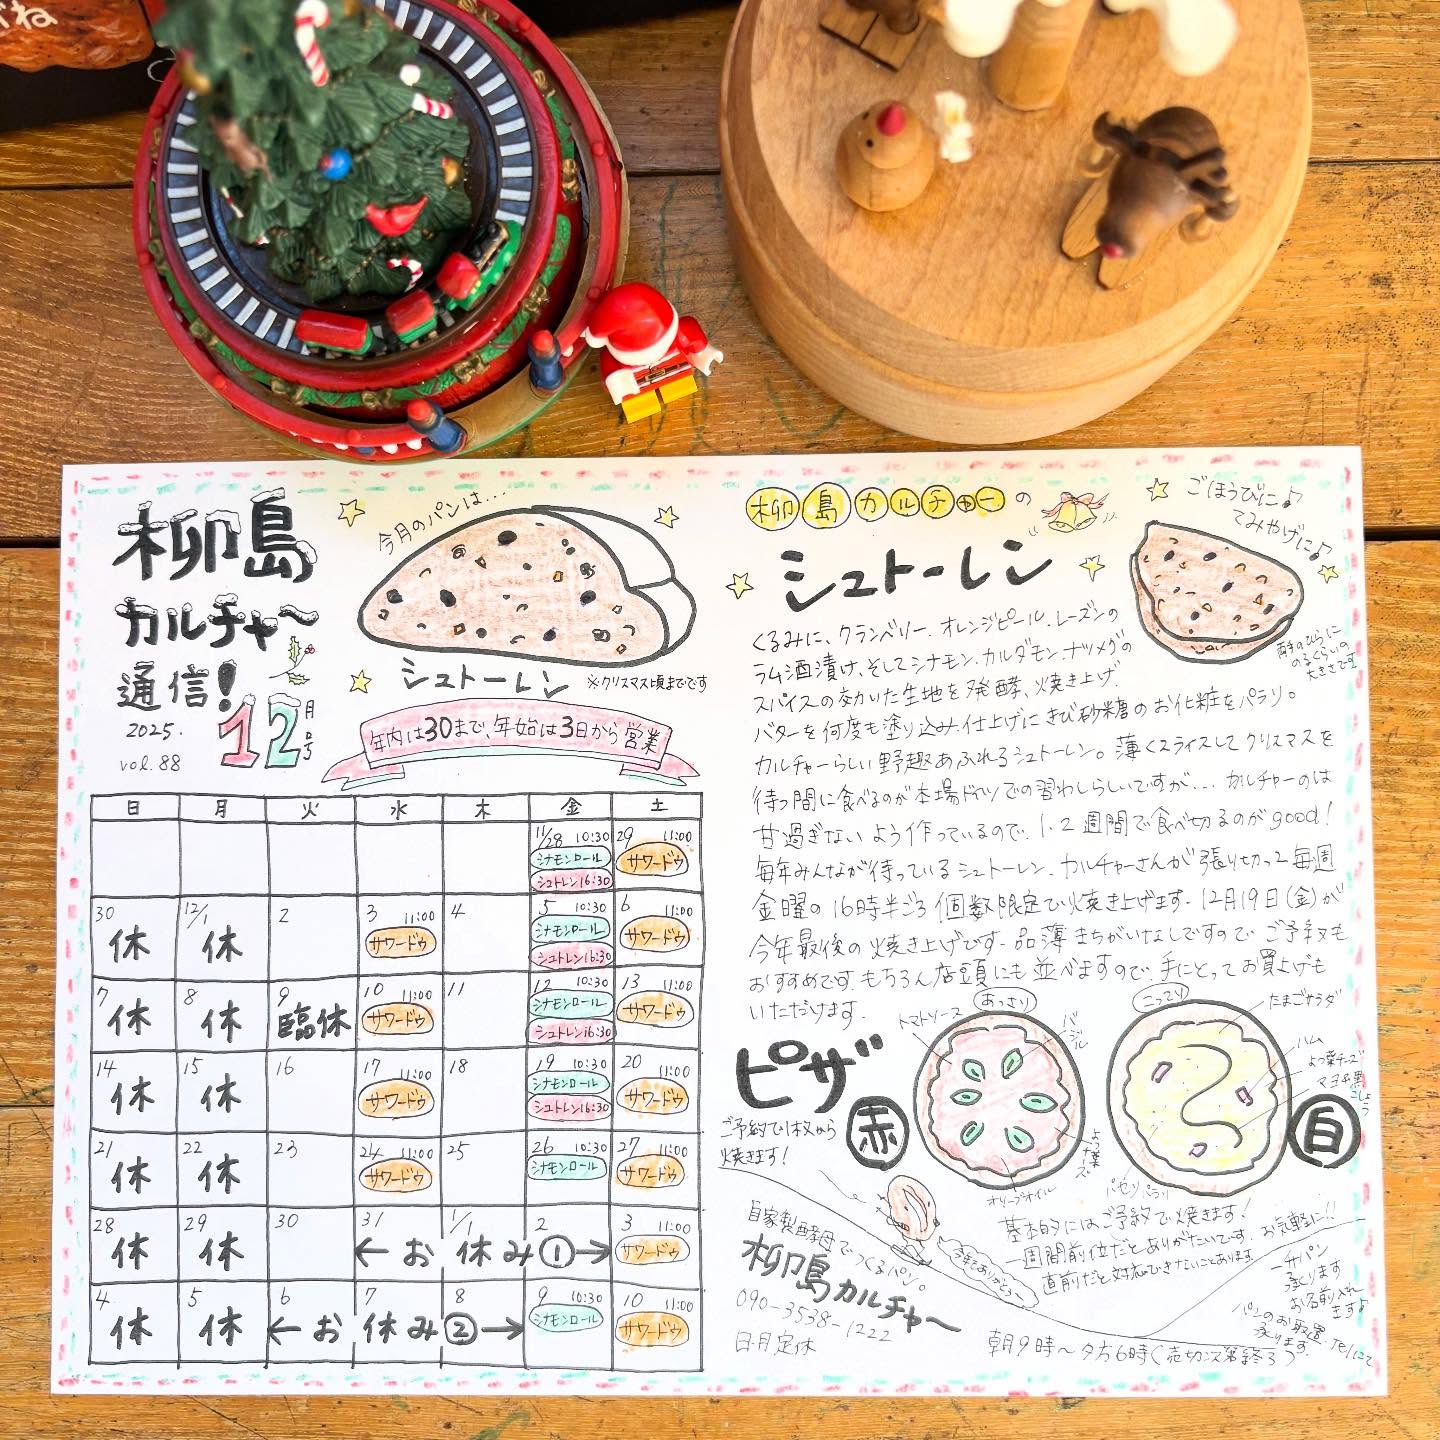 柳島
カルチャ〜
通信!
2025.
vol.88
12月号
今月のパンは...
シュトーレン
※クリスマス頃までです
年内は30まで、年始は3日から営業
日 月 火 水 木 金 土
11/28 10:30 シナモンロール シュトレン16:30
29 11:00 サワードゥ
30 休
12/1 休
2
3 11:00 サワードゥ
4
5 10:30 シナモンロール シュトレン16:30
6 11:00 サワードゥ
7 休
8 休
9 臨休
10 11:00 サワードゥ
11
12 10:30 シナモンロール シュトレン16:30
13 11:00 サワードゥ
14 休
15 休
16
17 11:00 サワードゥ
18
19 10:30 シナモンロール シュトレン16:30
20 11:00 サワードゥ
21 休
22 休
23
24 11:00 サワードゥ
25
26 10:30 シナモンロール
27 11:00 サワードゥ
28 休
29 休
30
31 1/1 2
←お休み①→
3 11:00 サワードゥ
4 休
5 休
6 7 8
←お休み②→
9 10:30 シナモンロール
10 11:00 サワードゥ
柳島カルチャーの
シュトーレン
ごほうびに♪
てみやげに♪
くるみに、クランベリー、オレンジピール、レーズンの
ラム酒漬け、そしてシナモン、カルダモン、ナツメグの
スパイスの効いた生地を発酵、焼き上げ、
バターを何度も塗り込み、仕上げにきび砂糖のお化粧をパラリ。
カルチャーらしい野趣あふれるシュトーレン。薄くスライスしてクリスマスを
待つ間に食べるのが本場ドイツでの習わしらしいですが... カルチャーのは
甘過ぎないよう作っているので、1、2週間で食べ切るのがgood!
毎年みんなが待っているシュトーレン、カルチャーさんが張り切って毎週
金曜の16時半ごろ個数限定で焼き上げます。12月19日(金)が
今年最後の焼き上げです。品薄まちがいなしですのでご予約も
おすすめです。もちろん店頭にも並べますので、手にとってお買上げも
いただけます。
ピザ
ご予約で1枚から
焼きます!
赤
あっさり
トマトソース
バジル
よつ葉チーズ
オリーブオイル
白
こってり
たまごサラダ
ハム
よつ葉チーズ
マヨ&黒こしょう
パセリパラリ
基本的にはご予約で焼きます!お気軽に!!
一週間前位だとありがたいです。
直前だと対応できないことあります。
自家製酵母でつくるパン。
柳島カルチャ〜
090-3538-1222
日・月定休
朝9時〜夕方6時(売切次第終了)
今年もありがとう